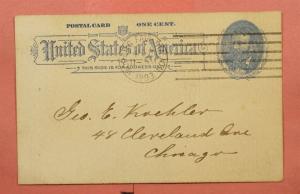 POSTAL CARD ONE CENT.
United States of America
THIS SIDE IS FOR ADDRESS ONLY
1903
Geo. E. Koehler
48 Cleveland Ave
Chicago